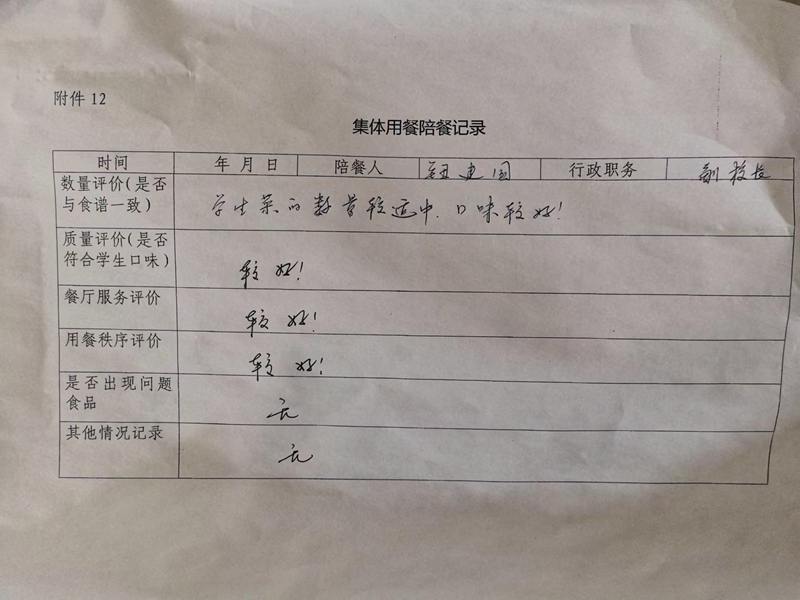 附件 12
集体用餐陪餐记录
时间 年 月 日 陪餐人 建国 行政职务 副校长
数量评价(是否与食谱一致) 学生菜的数量较适中.口味较好!
质量评价(是否符合学生口味) 较好!
餐厅服务评价 较好!
用餐秩序评价 较好!
是否出现问题食品 无
其他情况记录 无